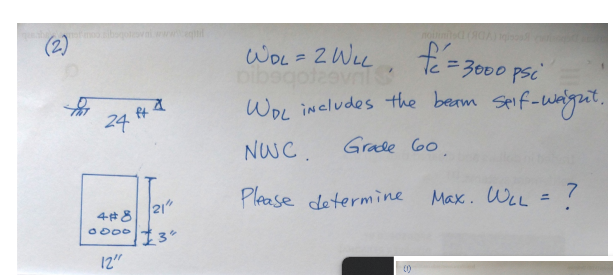 (2)
W_DL = 2 W_LL   f'c = 3000 psi
W_DL includes the beam self-weight.
24 ft
NWC.   Grade 60.
Please determine Max. W_LL = ?
21"
4#8
3"
12"
(1)